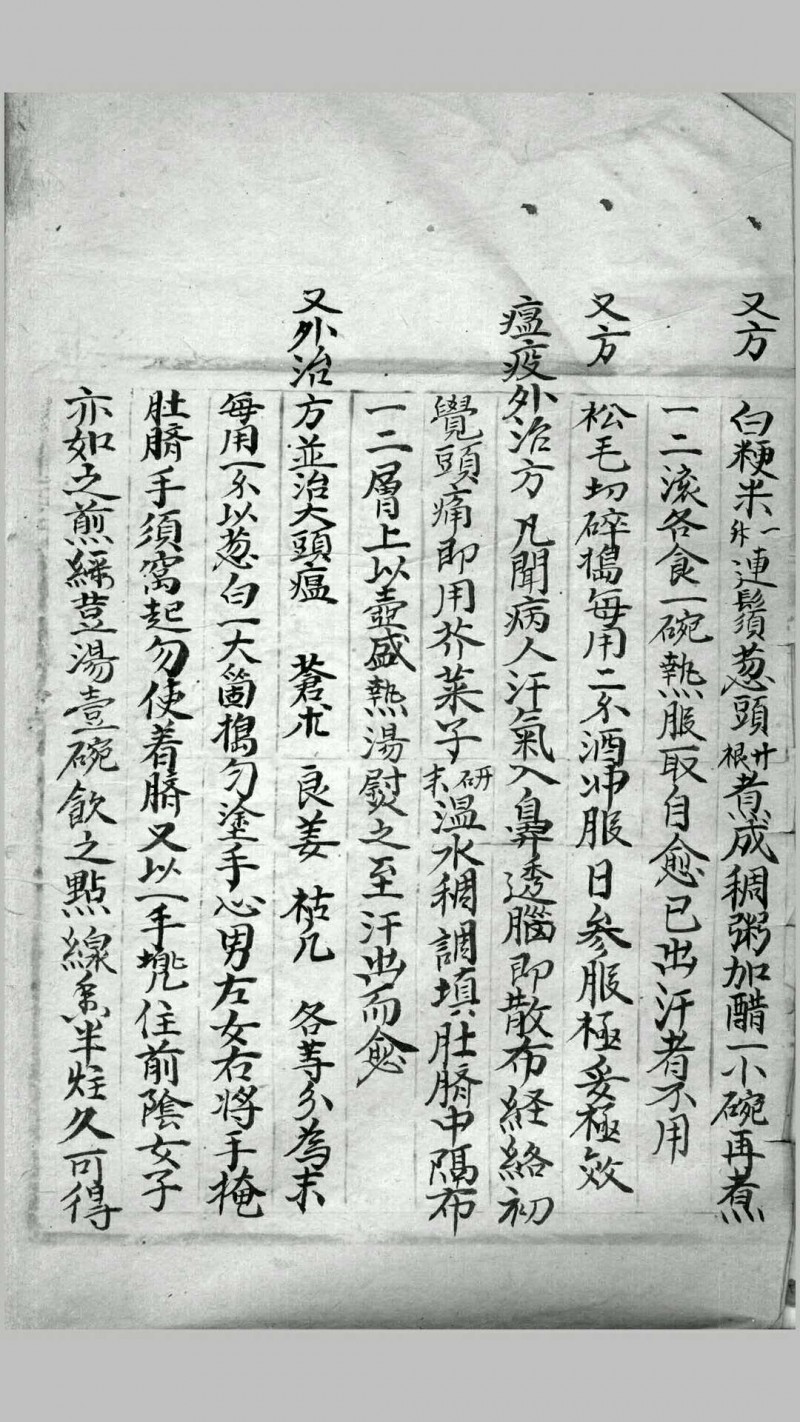 又方　白粳米一升連鬚葱頭廿根煮成稠粥加醋一小碗再煮
一二滚各食一碗熱服取自愈已出汗者不用
又方　松毛切碎搗每用二不酒冲服日叄服極妥極效
瘟疫外治方　凡聞病人汗氣入鼻透腦即散布経絡初
覺頭痛即用芥菜子研末温水稠調填肚臍中隔布
一二層上以壺盛熱湯熨之至汗出而愈
又外治方並治大頭瘟　蒼朮　良姜　枯凡　各等分為末
每用一不以葱白一大箇搗匀塗手心男左女右將手掩
肚臍手須窩起勿使着臍又以一手兠住前陰女子
亦如之煎綠荳湯壹碗飲之點線香半炷久可得